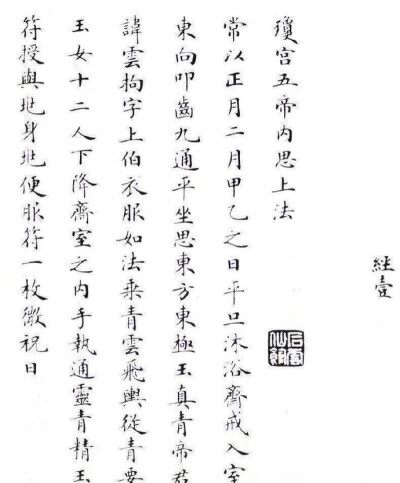 經壹
瓊宮五帝內思上法
常以正月二月甲乙之日平旦沐浴齋戒入室
東向叩齒九通平坐思東方東極玉真青帝君
諱雲拘字上伯衣服如法乘青雲飛輿從青要
玉女十二人下降齋室之內手執通靈青精玉
符授與兆身兆便服符一枚微祝曰